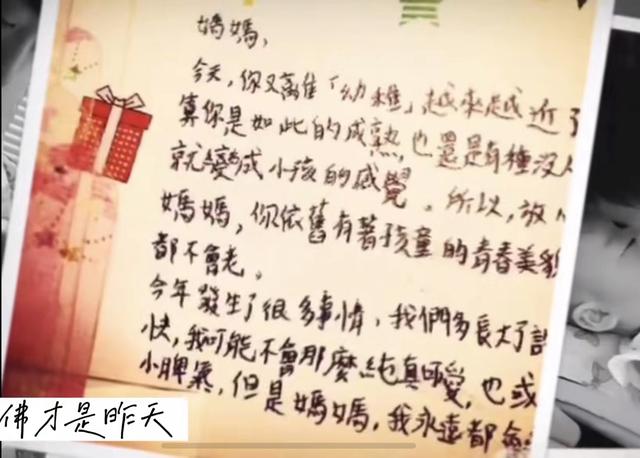 媽媽，
今天，你又離住「幼稚」越來越近了
算你是如此的成熟，也還是有種沒
就變成小孩的感覺。所以，放
媽媽，你依舊有著孩童的青春美貌
都不會老。
今年發生了很多事情，我們多長大了許
快，我可能不會那麼純真可愛，也或
小脾氣，但是媽媽，我永遠都會
佛才是昨天